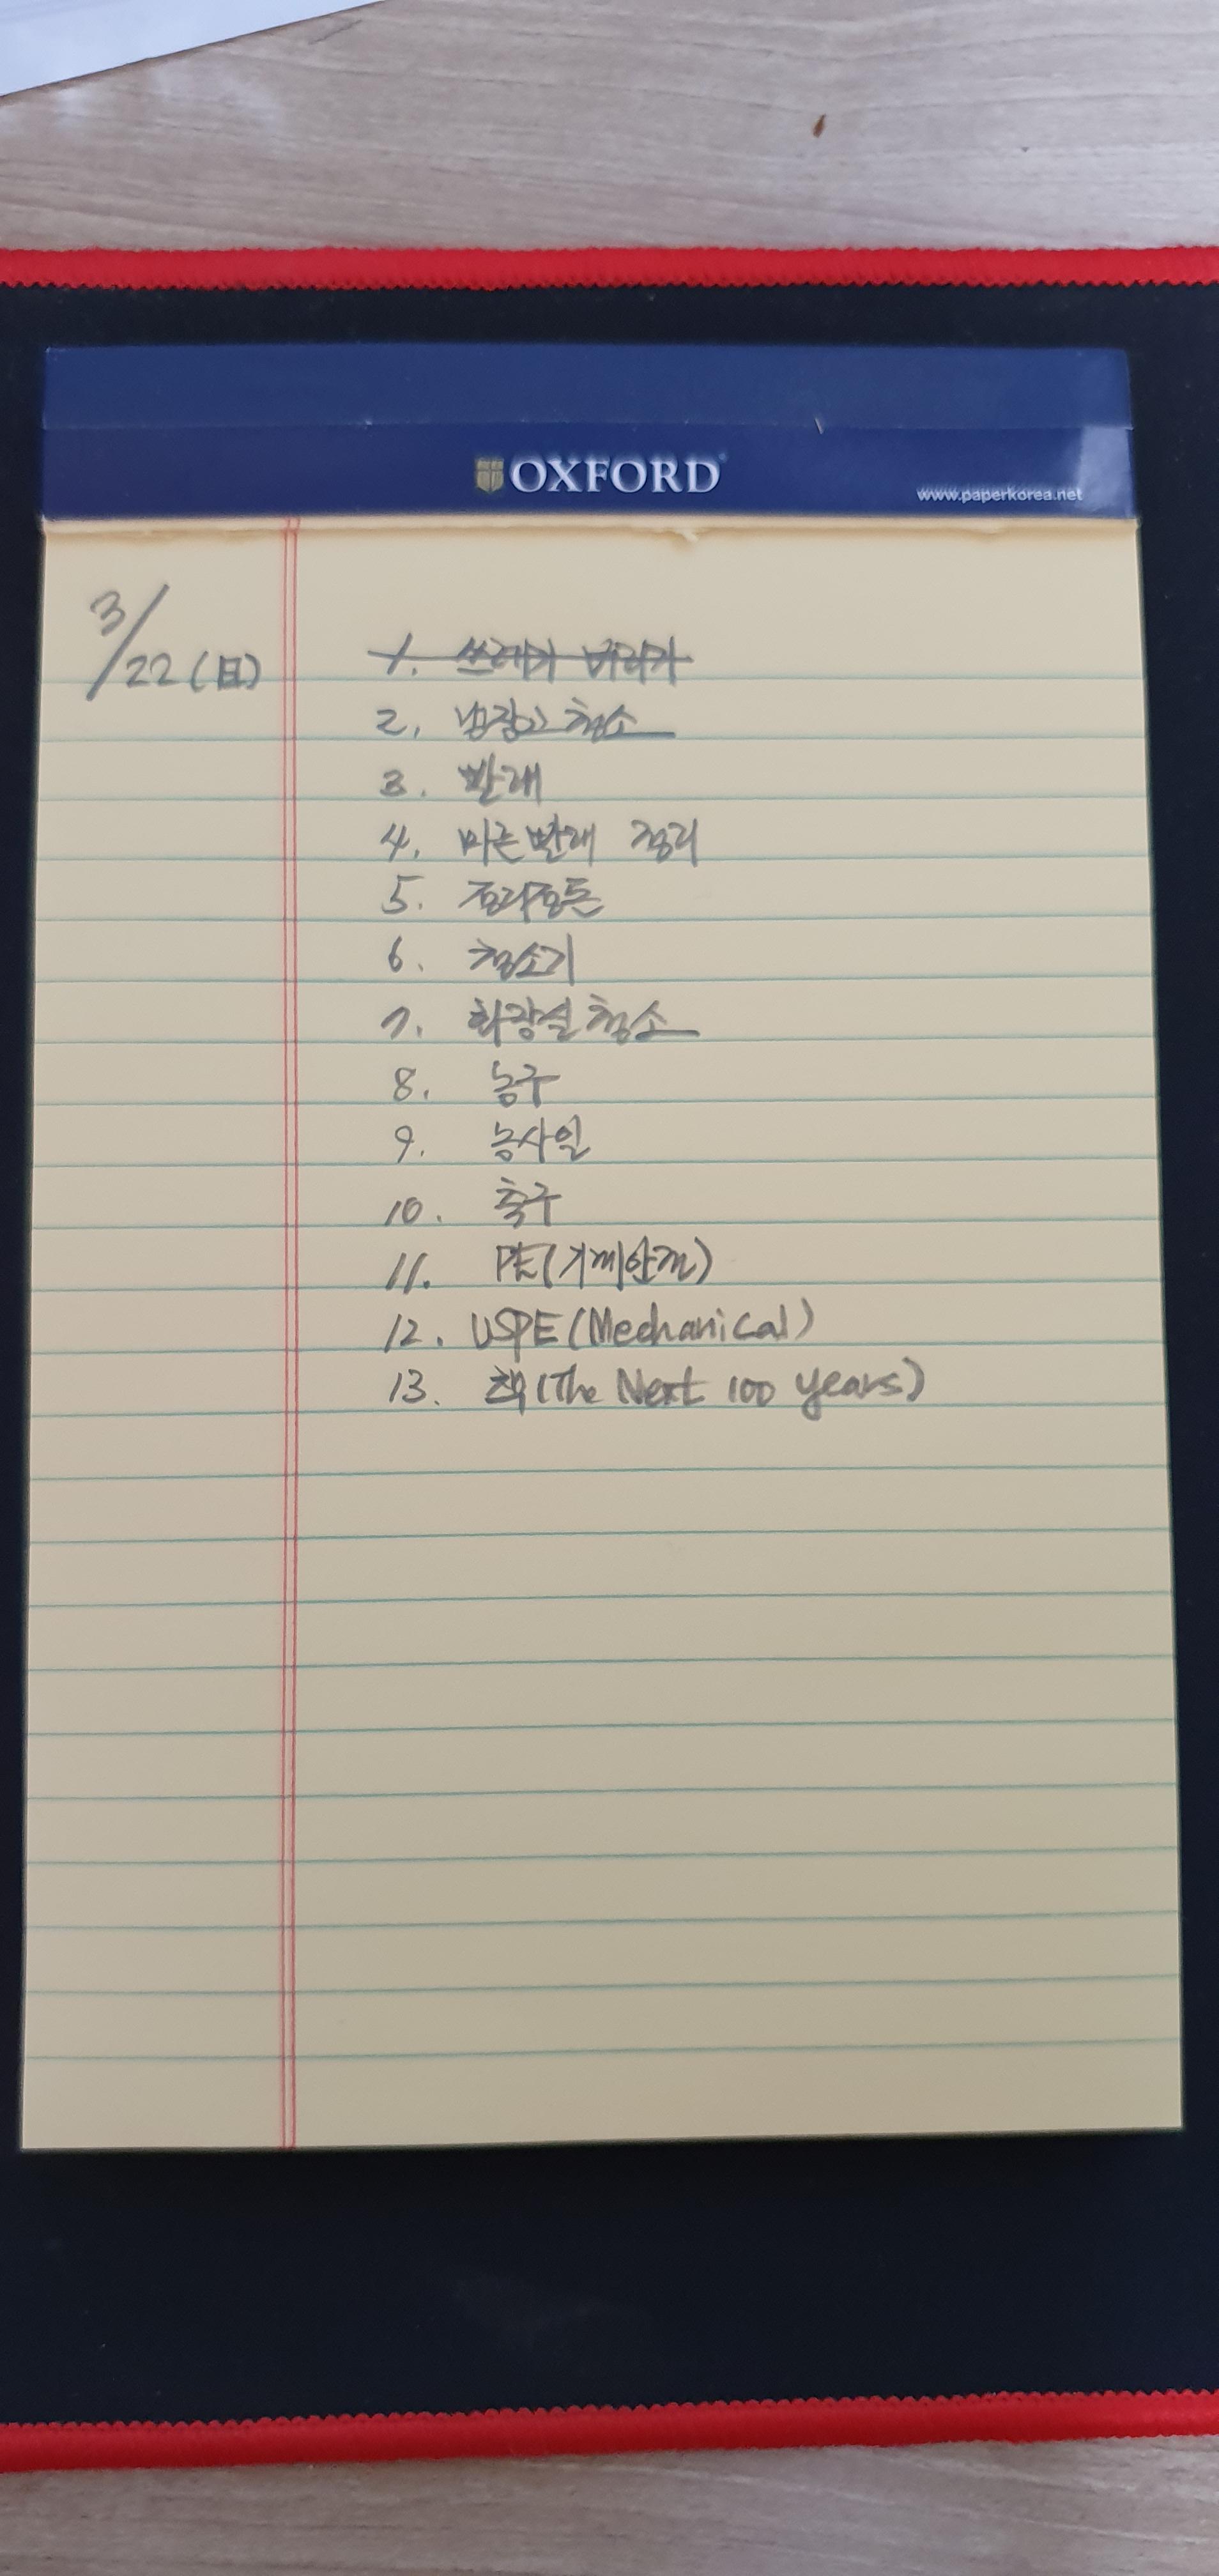 OXFORD
www.paperkorea.net
3/22(日)
1. 쓰레기 버리기
2. 냉장고 청소
3. 빨래
4. 마른빨래 정리
5.
6. 청소기
7. 화장실 청소
8. 농구
9. 농사일
10. 축구
11. PE(기계안전)
12. USPE(Mechanical)
13. 책(The Next 100 years)